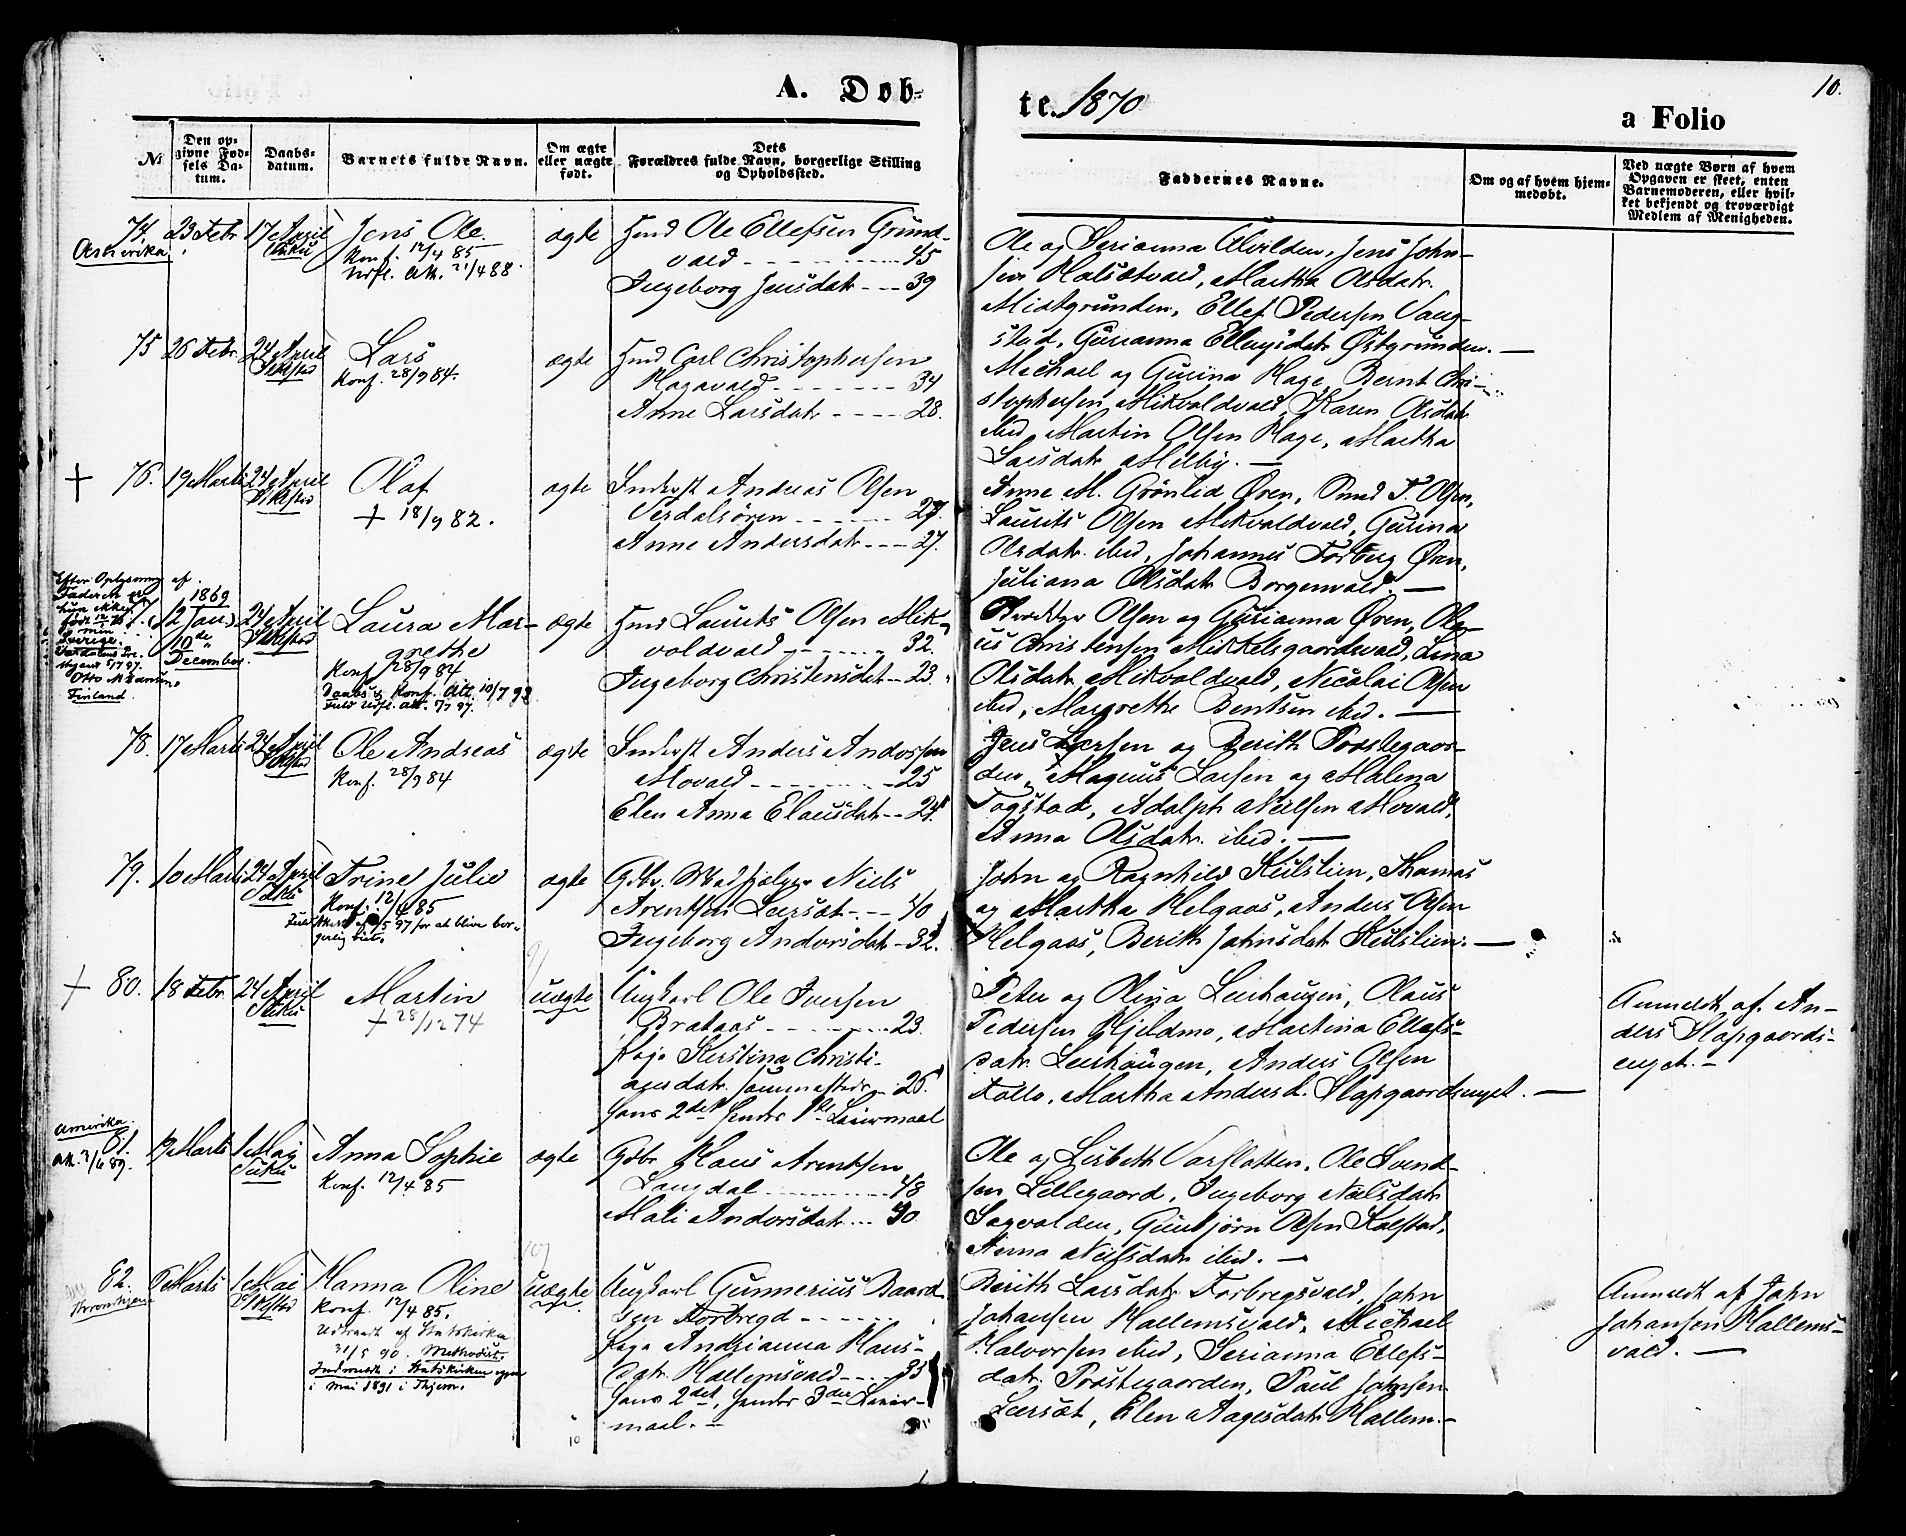 A. Døb-
te. 1870.
10.
a Folio
No
Den op-
givne Fød-
sels Da-
tum.
Daabs-
datum.
Barnets fulde Navn.
Om ægte
eller uægte
født.
Dets
Forældres fulde Navn, borgerlige Stilling
og Opholdssted.
Faddernes Navne.
Om og af hvem hjem-
medøbt.
Ved uægte Børn af hvem
Opgaven er skeet, enten
Barnemoderen, eller hvil-
ket bekjendt og troværdigt
Medlem af Menigheden.
74. 23 Febr. 17 April Jens Ole. ægte
Konf. 12/4 85
Udfl. Att. 21/4 88.
Ole Ellefsen Grund-
vald 45
Ingeborg Jensdatr 39
Ole og Serianna Alvilden, Jens John-
sen Halsætvald, Martha Olsdatr
Midtgrunden, Ellef Pedersen Vang-
stad, Gurianna Ellingsdatr Østgrunden.
75 26 Febr. 24 April Lars ægte
Konf. 28/9 84.
Carl Christophersen
Hagavald 34
Anne Larsdatr 28.
Michael og Gurina Hage, Bernt Chri-
stophersen Mikvoldvald, Karen Olsdatr
ibid, Martin Olsen Hage, Martha
Larsdatr Melby.
+ 76. 19 Marts 24 April Olaf ægte
+ 18/9 82.
Inderst Andreas Olsen
Verdalsøren 27.
Anne Andersdatr 27.
Anne M. Grönlid Øren, T. Olsen,
Laurits Olsen Mikvoldvald, Gurina
Olsdatr ibid, Johannes Forberg Øren,
Juliana Olsdatr Borgenvald.
Efter Oplysning af
Faderen er
hun ikke
født 12/1 70
Sverige
Otto M Hansen
Finland
1869
(12 Jan.)
10de
December
24 April Laura Mar-
grethe ægte
Konf. 28/9 84
Daabs & Konf. Att. 10/7 93
Fuld Udfl. Att. 5/7 97.
Laurits Olsen Mik-
voldvald 32.
Ingeborg Christensdatr 23.
Olsen og Gurianna Øren, Ola-
us Christensen Mikkelsgaardsvald, Lina
Olsdatr Mikvoldvald, Nicolai Olsen
ibid, Margrethe Bentsen ibid.
78. 17 Marts 24 April Ole Andreas ægte
Konf. 28/9 84
Inderst Anders Andersen
Movald 25
Elen Anna Elausdatr 24.
Jens Larsen og Berith Prostegaar-
den, Magnus Larsen og Malena
Fogstad, Adolph Nielsen Movald,
Anna Olsdatr ibid.
79. 10 Marts 24 April Trine Julie ægte
Konf. 12/4 85
for at blive bor-
gerlig viet.
Gdbr. Niels
Arentsen Leersæt 40
Ingeborg Andorsdatr 32.
John og Ragnhild Kulslien, Thomas
og Martha Helgaas, Anders Olsen
Helgaas, Berith Johnsdatr Kulslien.
+ 80. 18 Febr. 24 April Martin uægte
+ 28/12 74
Ungkarl Ole Iversen
Brataas 23.
Pige Kerstina Christi-
ansdatr sammesteds 26
hans 2det hendes 1ste Leiermaal
Peter og Olina Leerhaugen, Olaus
Pedersen Kjeldmo, Martina Ellefs-
datr Leerhaugen, Anders Olsen
Follo, Martha Andersd. Slapgaardsenget.
Anmeldt af An-
ders Slapgaards-
enget.
Amerika.
81.
Att. 3/6 89.
9 Marts 1 Mai Anna Sophie ægte
Konf. 12/4 85
Gdbr. Arentsen
Langdal 48
Mali Andorsdatr 40
Ole og Lisbeth Varslotten, Ole Svend-
sen Lillegaard, Ingeborg Nielsdatr
Sagvolden, Gunbjörn Olsen Kalstad,
Anna Nielsdatr ibid.
82. 5 Marts 1 Mai Hanna Oline uægte
Konf. 12/4 85.
Udtraadt af Statskirken
31/5 90. Methodist.
Indmeldt i Statskirken igjen
i Mai 1891 i Thjem.
Ungkarl Gunnerius Baard-
sen Forbregd
Pige Andrianna Haus-
datr Hallemsvald 33
hans 2det, hendes 3die Leier-
maal.
Berith Larsdatr Forbregsvald, John
Johansen Hallemsvald, Michael
Halvorsen ibid, Serianna Ellefs-
datr Prostegaarden, Paul Johnsen
Leersæt, Elen Aagesdatr Hallem.
Anmeldt af John
Johansen Hallems-
vald.